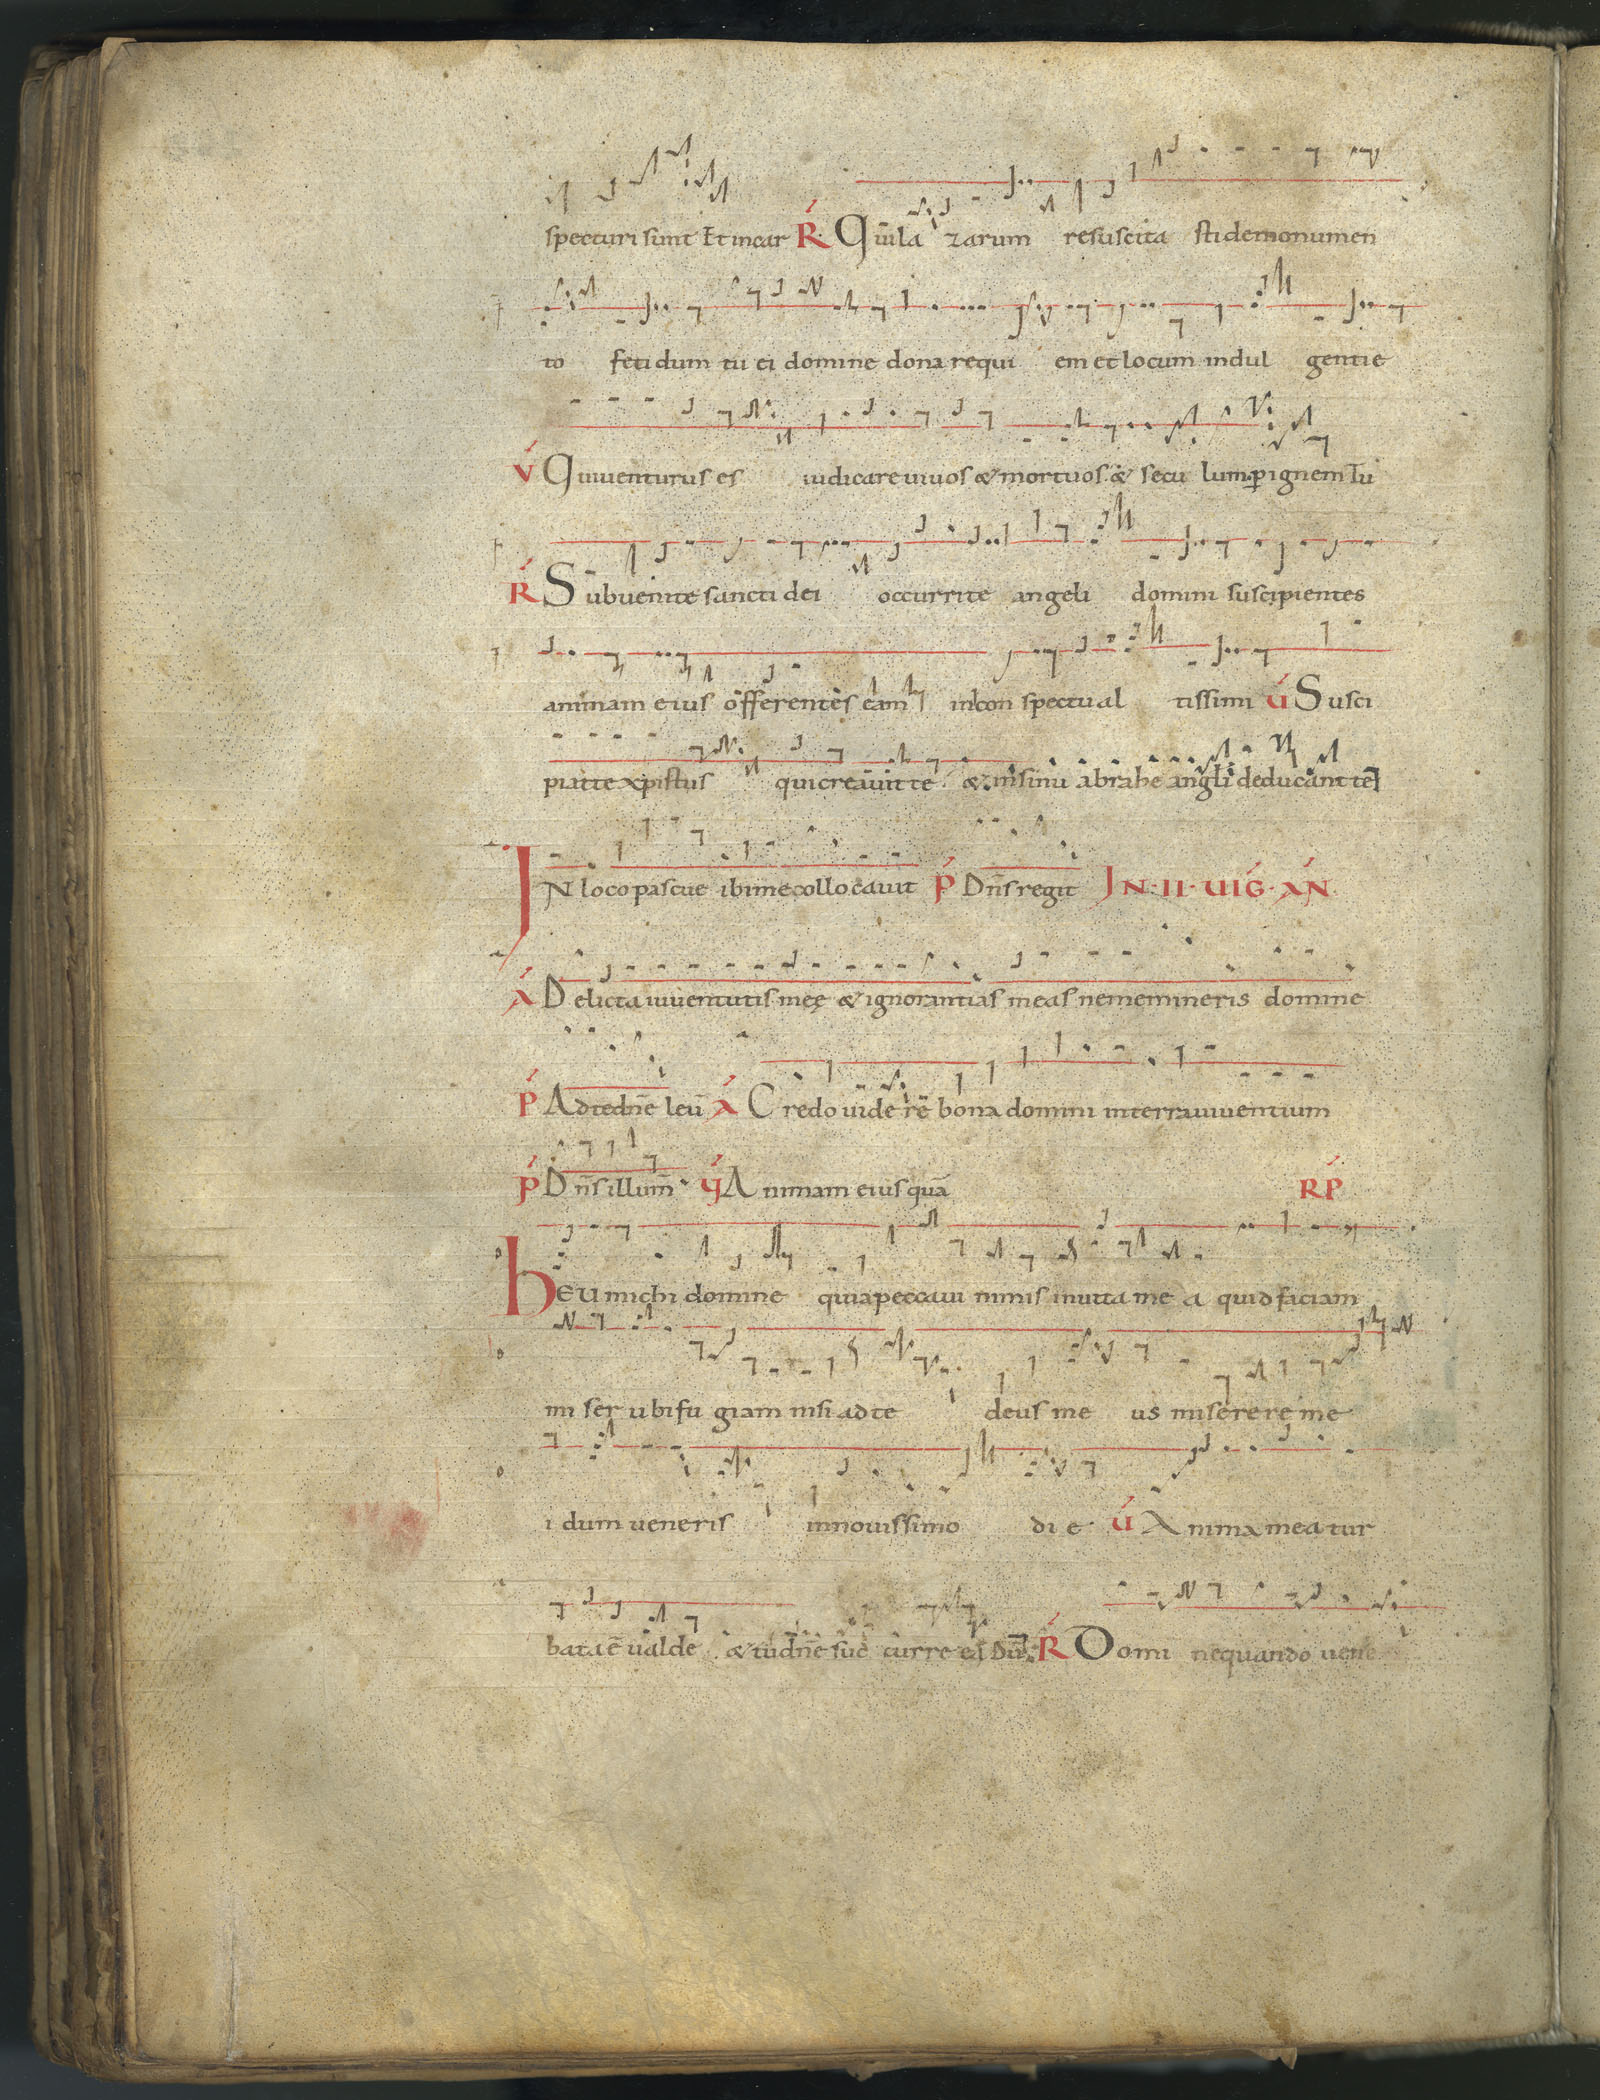 specturi sunt Et incar R Qui la zarum resuscita sti demonumen
to fetidum tu ei domine dona requi em et locum indul gentie
V Qui uenturus es iudicare uiuos & mortuos & secu lum p ignem Tu
R Subuenite sancti dei occurrite angeli domini suscipientes
animam eius offerentes eam in con spectu al tissimi V Susci
piat te xpistus qui creauit te & in sinu abrahe angli deducant te
IN loco pascue ibi me collocauit P Dn̄s regit IN · II · UIG · AN
A Delicta iuuentutis meę & ignorantias meas ne memineris domine
P Ad te dn̄e leū A Credo uide re bona domini in terra uiuentium
P Dn̄s illum̄ Animam eius quā RP
HEU michi domine quia peccaui nimis in uita me a quid faciam
mi ser ubi fu giam nisi ad te deus me us miserere me
i dum ueneris in nouissimo di e V Anima mea tur
bata ē ualde & tu dn̄e suc curre ei Dū R Domi ne quando uene